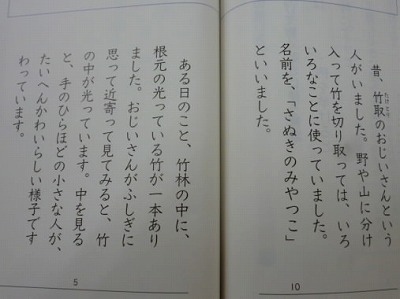 昔、竹取のおじいさんという
人がいました。野や山に分け
入って竹を切り取っては、いろ
いろなことに使っていました。
名前を、「さぬきのみやつこ」
といいました。
10
ある日のこと、竹林の中に、
根元の光っている竹が一本あり
ました。おじいさんがふしぎに
思って近寄って見てみると、竹
の中が光っています。中を見る
と、手のひらほどの小さな人が、
たいへんかわいらしい様子です
わっています。
5